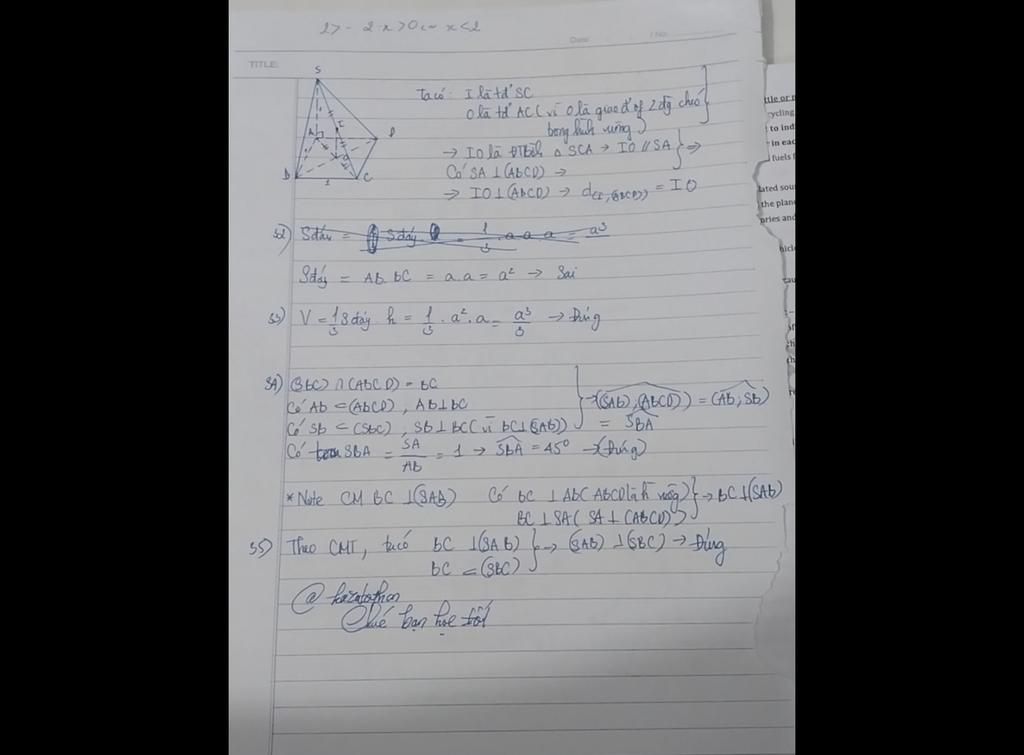 2 > - 2 x > 0 ⇔ x < 2
Date: / No.
TITLE:
S
I
A
D
O
B
C
Ta có: I là tđ' SC
O là tđ' AC ( vì O là giao đ' of 2 đg chéo
trong hình vuông )
→ IO là ĐTBình Δ SCA → IO // SA
Có SA ⊥ (ABCD) →
→ IO ⊥ (ABCD) → d(I,(ABCD)) = IO
Sđáy = Sđáy = 1/3 . a . a . a = a³
Sđáy = AB . BC = a . a = a² → Sai
33) V = 1/3 Sđáy . h = 1/3 . a² . a = a³/3 → Đúng
34) (SBC) ∩ (ABCD) = BC
Có AB ⊂ (ABCD) , AB ⊥ BC
Có SB ⊂ (SBC) , SB ⊥ BC ( vì BC ⊥ (SAB))
→ ((SAB), (ABCD)) = (AB; SB)
= SBA
Có tan SBA = SA/AB = 1 → SBA = 45° → (Đúng)
* Note CM BC ⊥ (SAB) Có BC ⊥ AB ( ABCD là h vuông ) → BC ⊥ (SAB)
BC ⊥ SA ( SA ⊥ (ABCD) )
35) Theo CMT, ta có BC ⊥ (SAB) → (SAB) ⊥ (SBC) → Đúng
BC ⊂ (SBC)
Chúc bạn học tốt
ycling
to ind
in eac
fuels
lated sou
the plan
ories and